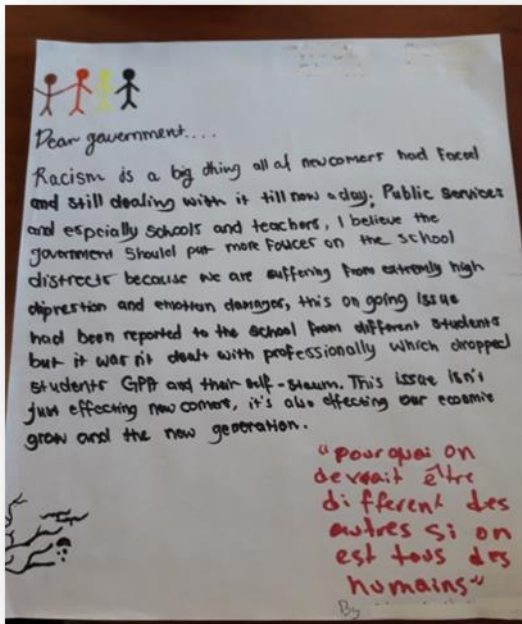 Dear government....
Racism is a big thing all of newcomers had faced
and still dealing with it till now a day; Public Services
and espcially schools and teachers, I believe the
government should put more foucer on the school
distrectr because we are suffering from extremly high
diprestion and emotion damager, this on going issue
had been reported to the school from different students
but it war n't dealt with professionally which dropped
students GPA and their self-steum. This issue isn't
just effecting new comers, it's also effecting our ecomic
grow and the new generation.
"pourquoi on
devrait être
différent des
autres si on
est tous des
humains"
By